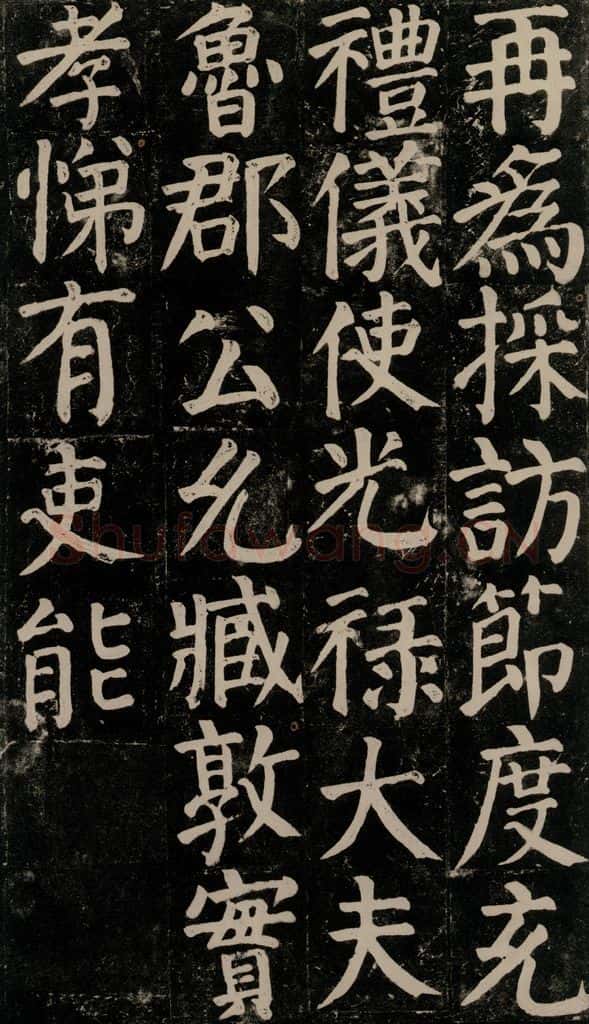 再為採訪節度充
禮儀使光祿大夫
魯郡公允臧敦實
孝悌有吏能
Shufawang.CN